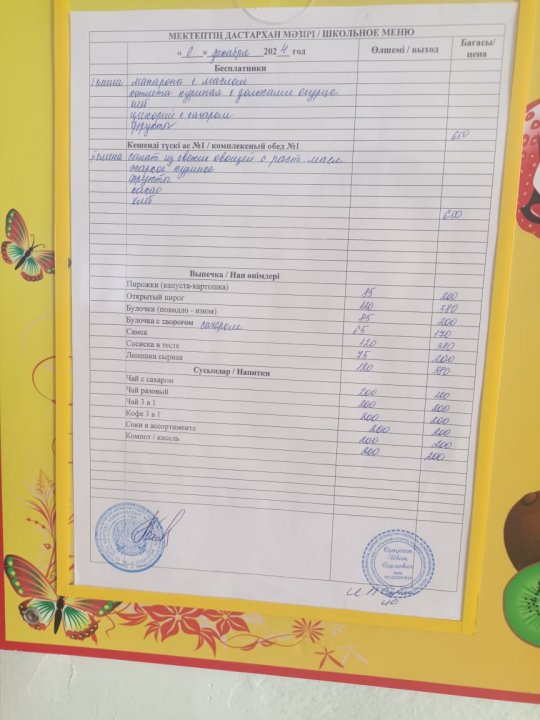 МЕКТЕПТІҢ ДАСТАРХАН МӘЗІРІ / ШКОЛЬНОЕ МЕНЮ
« 6 » декабря 2024 год Өлшемі / выход Бағасы/ цена
Бесплатники
I смена макароны с маслом
котлета куриная с дольками огурца
хлеб
цикорий с сахаром
фрукты
650
Кешенді түскі ас №1 / комплексный обед №1
II смена салат из свежих овощей с раст. масл
жаркое куриное
фрукты
какао
хлеб
650
Выпечка / Нан өнімдері
Пирожки (капуста-картошка) 85 200
Открытый пирог 120 380
Булочки (повидло - изюм) 85 200
Булочка с творогом сахаром 65 170
Самса 120 380
Сосиска в тесте 75 200
Лепешка сырная 120 380
Сусындар / Напитки
Чай с сахаром 200 120
Чай разовый 200 200
Чай 3 в 1 200 200
Кофе 3 в 1 200 200
Соки в ассортименте 200 200
Компот / кисель 200 200
Иван
Сергеевич